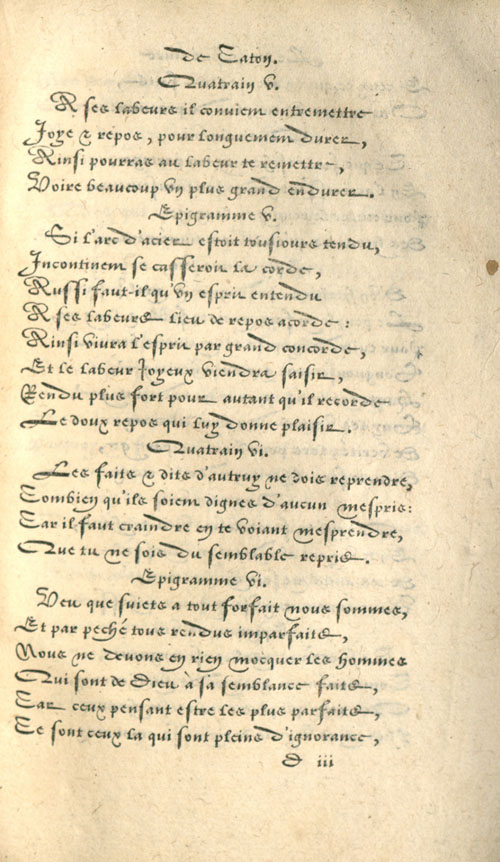 de Caton.
Quatrain v.
A ses labeurs il convient entremettre
Joye & repos, pour longuement durer,
Ainsi pourras au labeur te remettre,
Voire beaucoup vn plus grand endurer.
Epigramme v.
Si l'arc d'acier estoit tousiours tendu,
Incontinent se casseroit la corde,
Aussi faut-il qu'vn esprit entendu
A ses labeurs lieu de repos acorde:
Ainsi vivra l'esprit par grand concorde,
Et le labeur Joyeux viendra saisir,
Rendu plus fort pour autant qu'il recorde
Le doux repos qui luy donne plaisir.
Quatrain vi.
Les faits & dits d'autruy ne dois reprendre,
Combien qu'ils soient dignes d'aucun mespris:
Car il faut craindre en te voiant mesprendre,
Que tu ne sois du semblable repris.
Epigramme vi.
Veu que suiets a tout forfait nous sommes,
Et par peché tous rendus imparfaits,
Nous ne devons en rien mocquer les hommes
Qui sont de Dieu à sa semblance faits,
Car ceux pensant estre les plus parfaits,
Ce sont ceux la qui sont pleins d'ignorance,
d iii